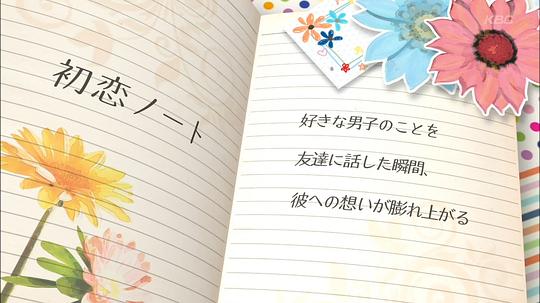 KBC
初恋ノート
好きな男子のことを
友達に話した瞬間、
彼への想いが膨れ上がる